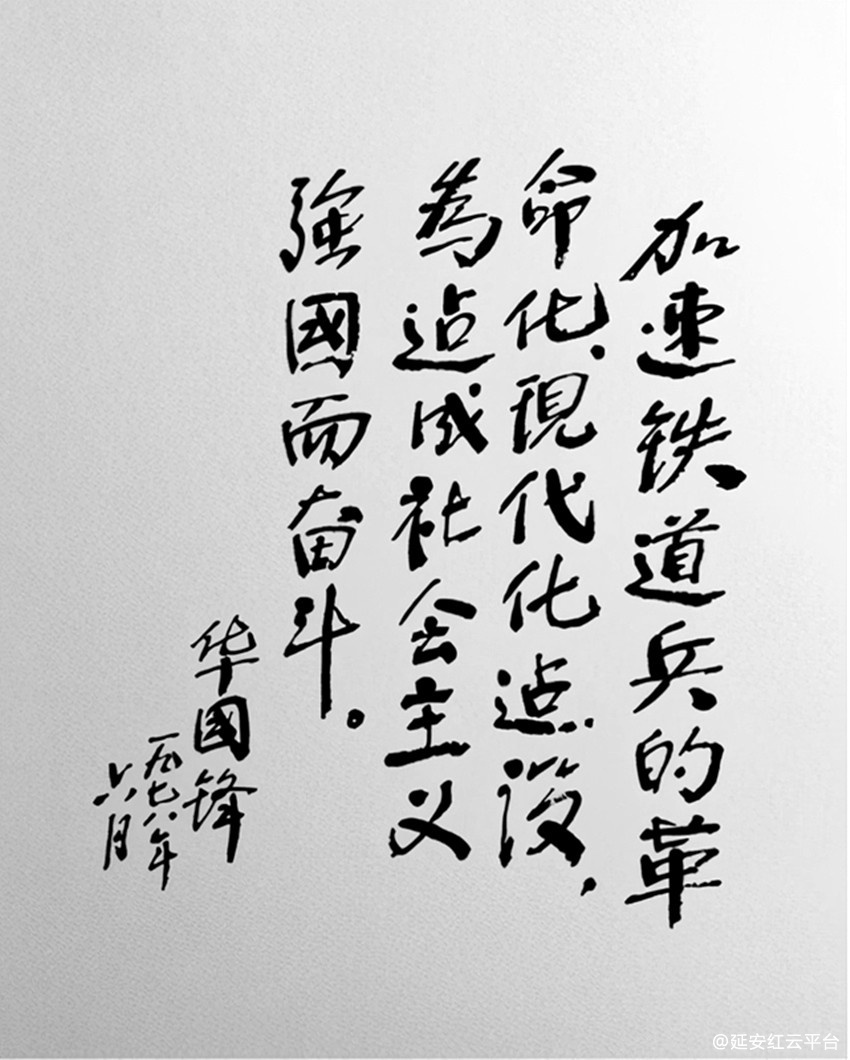 加速铁道兵的革
命化、現代化迠设，
為迠成社会主义
強國而奋斗。
华國锋
一九七八年
六月
@延安红云平台